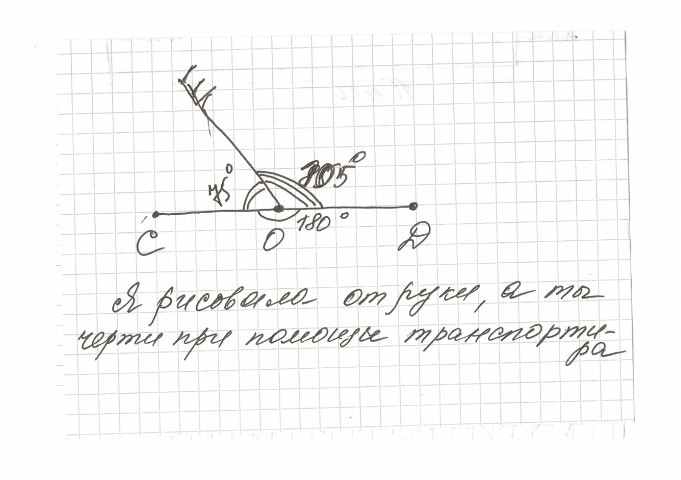 75° 105°
C O 180° D
Я рисовала от руки, а ты
черти при помощи транспорти-
ра